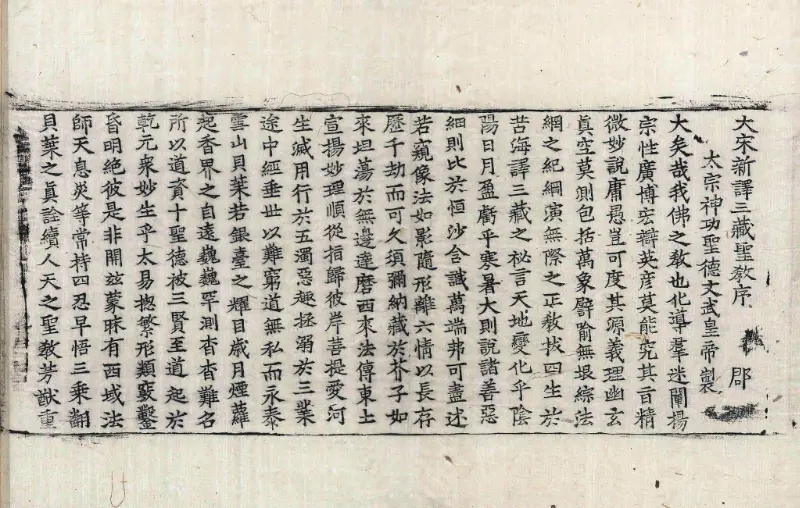 大宋新譯三藏聖教序 郡
太宗神功聖德文武皇帝製
大矣哉我佛之教也化導羣迷闡揚
宗性廣博宏辯英彥莫能究其旨精
微妙說庸愚豈可度其源義理幽玄
眞空莫測包括萬象譬喻無垠綜法
網之紀綱演無際之正教拔四生於
苦海譯三藏之祕言天地變化乎陰
陽日月盈虧乎寒暑大則說諸善惡
細則比於恒沙含識萬端弗可盡述
若窺像法如影隨形離六情以長存
歷千劫而可久須彌納藏於芥子如
來坦蕩於無邊達磨西來法傳東土
宣揚妙理順從指歸彼岸菩提愛河
生滅用行於五濁惡趣拯溺於三業
途中經垂世以難窮道無私而永泰
雪山貝葉若銀臺之耀目歲月煙蘿
起香界之自遠巍巍罕測杳杳難名
所以道資十聖德被三賢至道起於
乾元衆妙生乎太易揔繁形類竅鑿
昏明絕彼是非開茲蒙昧有西域法
師天息災等常持四忍早悟三乘翻
貝葉之眞詮續人天之聖教芳猷重